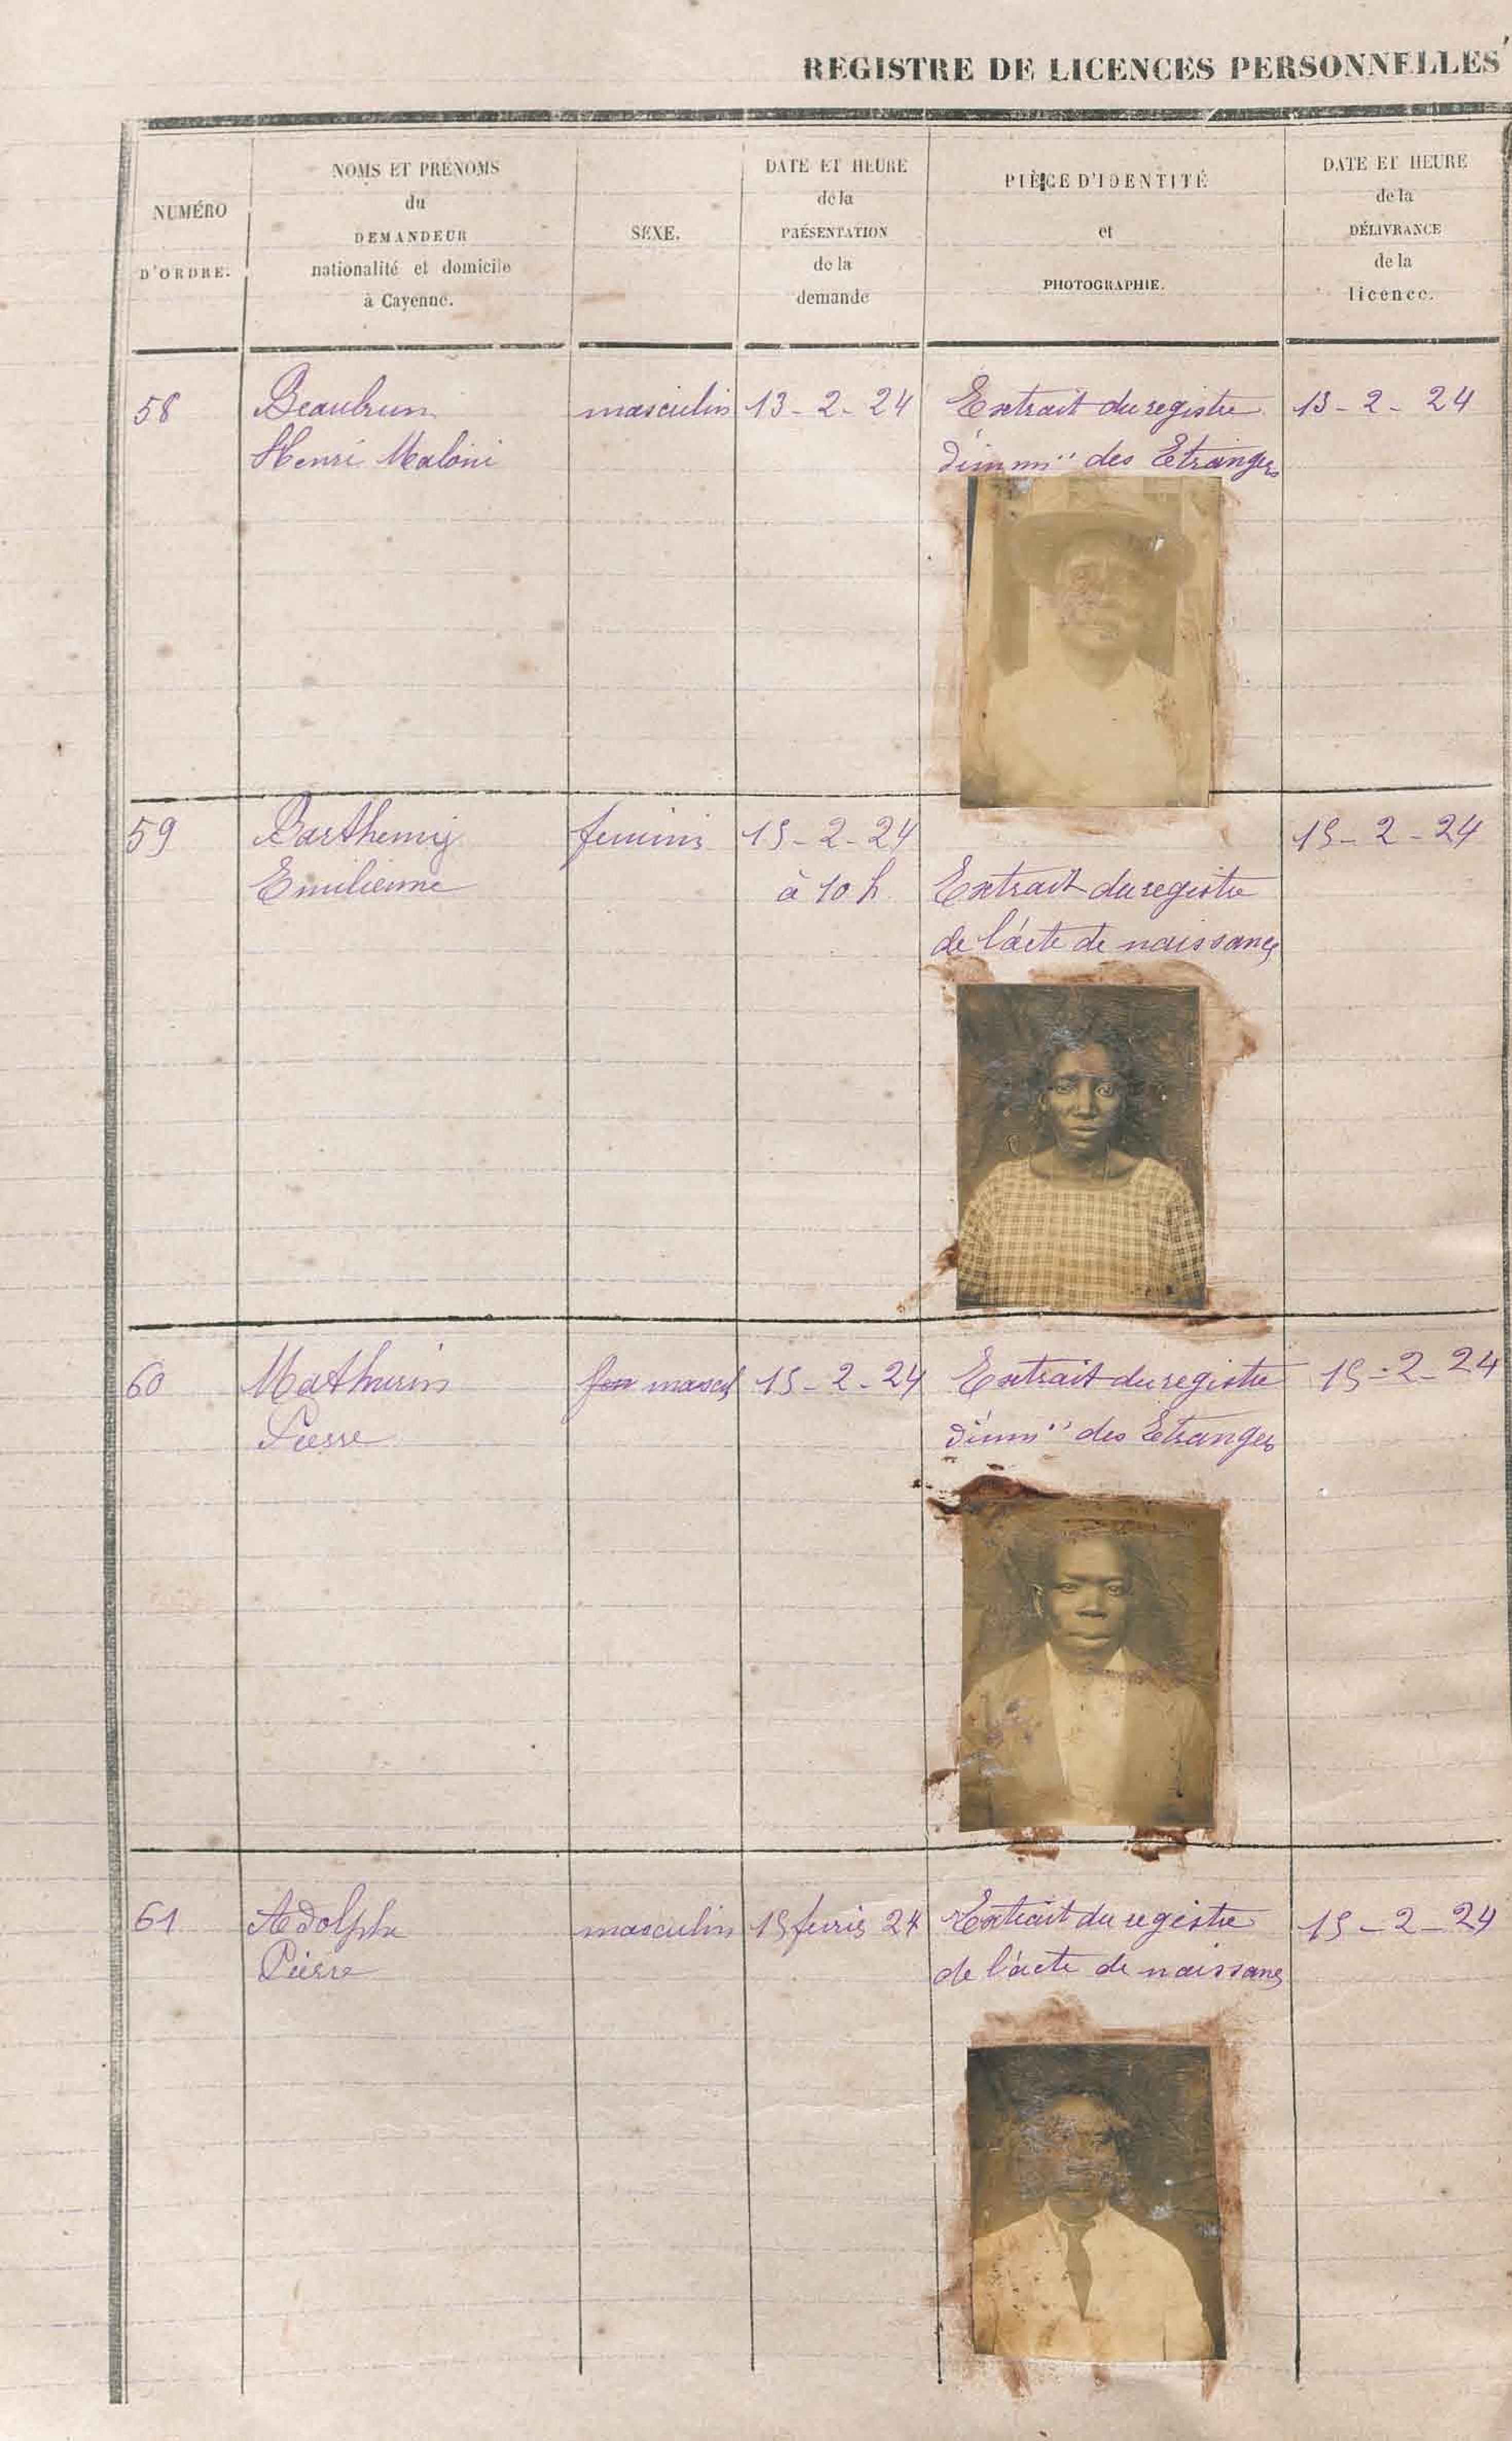 REGISTRE DE LICENCES PERSONNELLES
NUMÉRO
D'ORDRE.
NOMS ET PRÉNOMS
du
DEMANDEUR
nationalité et domicile
à Cayenne.
SEXE.
DATE ET HEURE
de la
PRÉSENTATION
de la
demande
PIÈCE D'IDENTITÉ
et
PHOTOGRAPHIE.
DATE ET HEURE
de la
DÉLIVRANCE
de la
licence.
58
Beaubrun
Henri Maloini
masculin
13-2-24
Extrait du registre
d'imm<sup>on</sup> des Etrangers
13-2-24
59
Barthemy
Emilienne
feminin
15-2-24
à 10 h
Extrait du registre
de l'acte de naissance
15-2-24
60
Mathurin
Pierre
fem mascul
15-2-24
Extrait du registre
d'imm<sup>on</sup> des Etrangers
15-2-24
61
Adolphe
Pierre
masculin
15 24
Extrait du registre
de l'acte de naissance
15-2-24